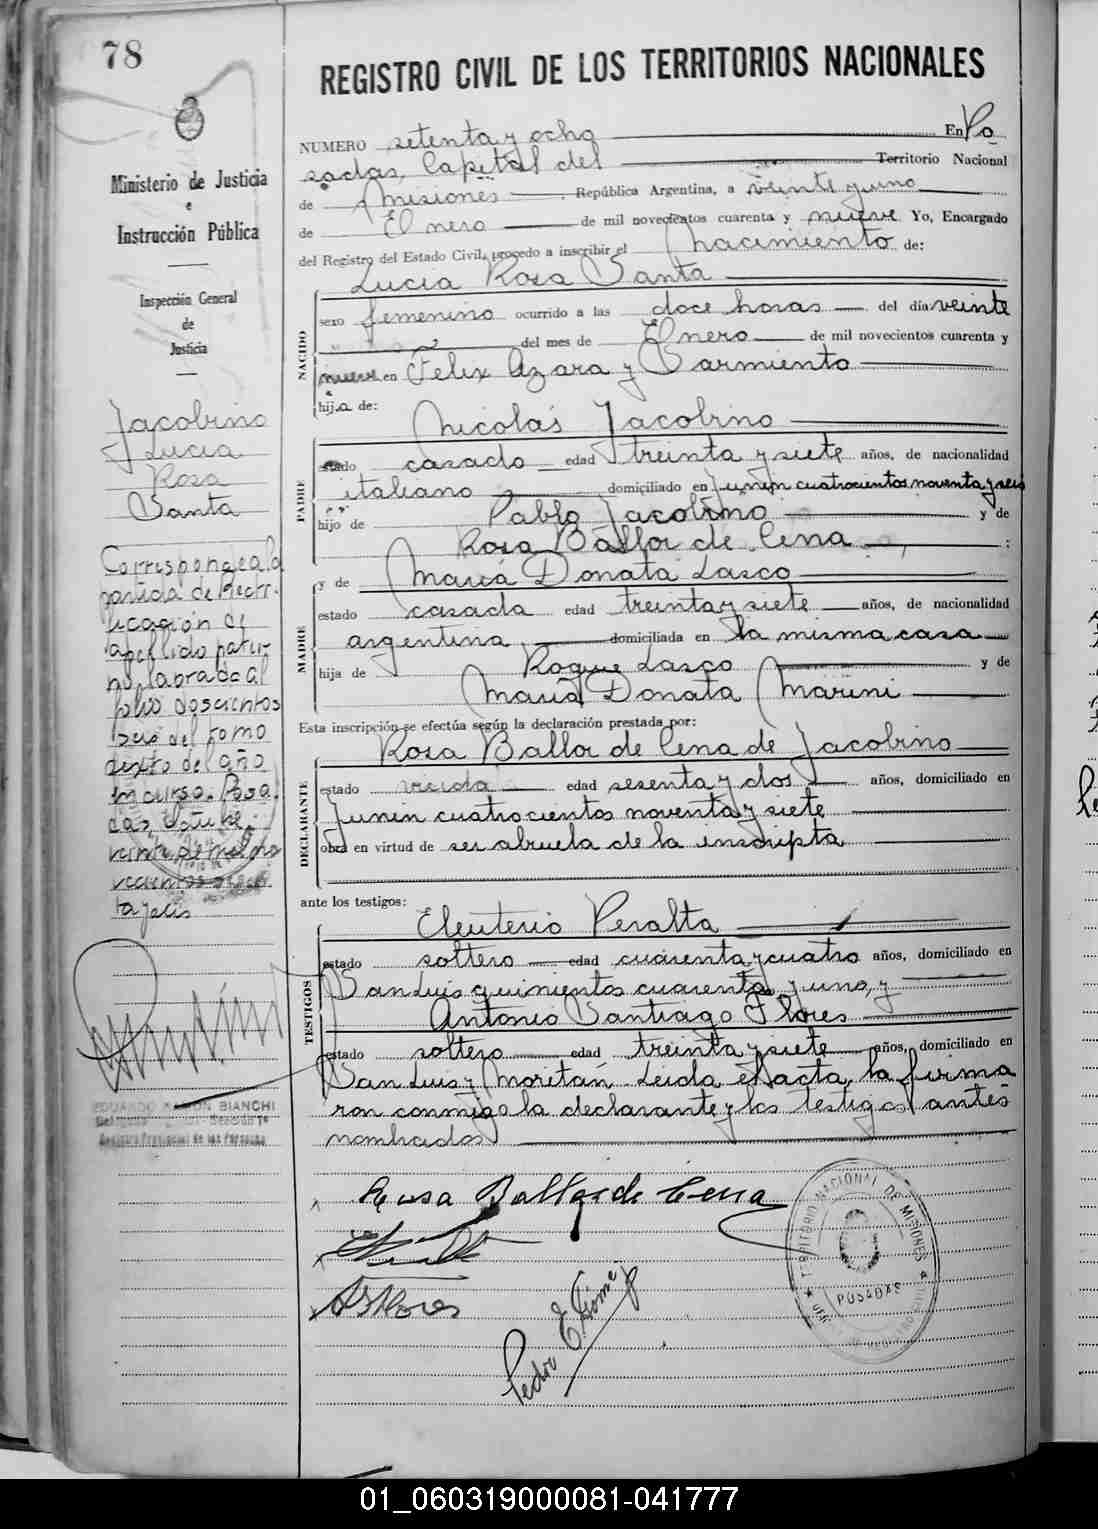 78
REGISTRO CIVIL DE LOS TERRITORIOS NACIONALES
Ministerio de Justicia
e
Instrucción Pública
Inspección General
de
Justicia
Jacobino
Lucia
Rosa
Santa
Corresponde a la
partida de Recti-
ficación de
apellido pater-
no labrada al
folio doscientos
seis del tomo
sexto del año
en curso. Posa
das, Octubre
veinte de mil no
vecientos
ta y seis
EDUARDO RAMON BIANCHI
Registro Provincial de las Personas
NUMERO setenta y ocho En Po
sadas, Capital del Territorio Nacional
de Misiones República Argentina, a veinte y uno
de Enero de mil novecientos cuarenta y nueve Yo, Encargado
del Registro del Estado Civil, procedo a inscribir el nacimiento de:
Lucia Rosa Santa
NACIDO
sexo femenino ocurrido a las doce horas del día veinte
del mes de Enero de mil novecientos cuarenta y
nueve en Felix Azara y Sarmiento
hija de:
Nicolás Jacobino
PADRE
estado casado edad treinta y siete años, de nacionalidad
italiano domiciliado en Junin cuatrocientos noventa y seis
hijo de Pablo Jacobino y de
Rosa Ballor de Cena
y de Maria Donata Lasco
MADRE
estado casada edad treinta y siete años, de nacionalidad
argentina, domiciliada en la misma casa
hija de Roque Lasco y de
Maria Donata Marini
Esta inscripción se efectúa según la declaración prestada por:
Rosa Ballor de Cena de Jacobino
DECLARANTE
estado viuda edad sesenta y dos años, domiciliado en
Junin cuatrocientos noventa y siete
obra en virtud de ser abuela de la inscripta
ante los testigos:
Eleuterio Peralta
TESTIGOS
estado soltero edad cuarenta y cuatro años, domiciliado en
San Luis quinientos cuarenta y uno, y
Antonio Santiago Flores
estado soltero edad treinta y siete años, domiciliado en
San Luis y Moritán Leida el acta, la firma
ron conmigo la declarante y los testigos antes
nombrados
Rosa Ballor de Cena
A S Flores
Pedro E. Gómez
TERRITORIO NACIONAL DE MISIONES
POSADAS
01_060319000081-041777